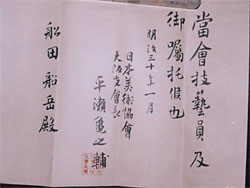 當會技藝員及
御囑托候也
明治三十年一月
日本美術協會
大阪支會長
平瀬亀之輔
船田舩岳殿